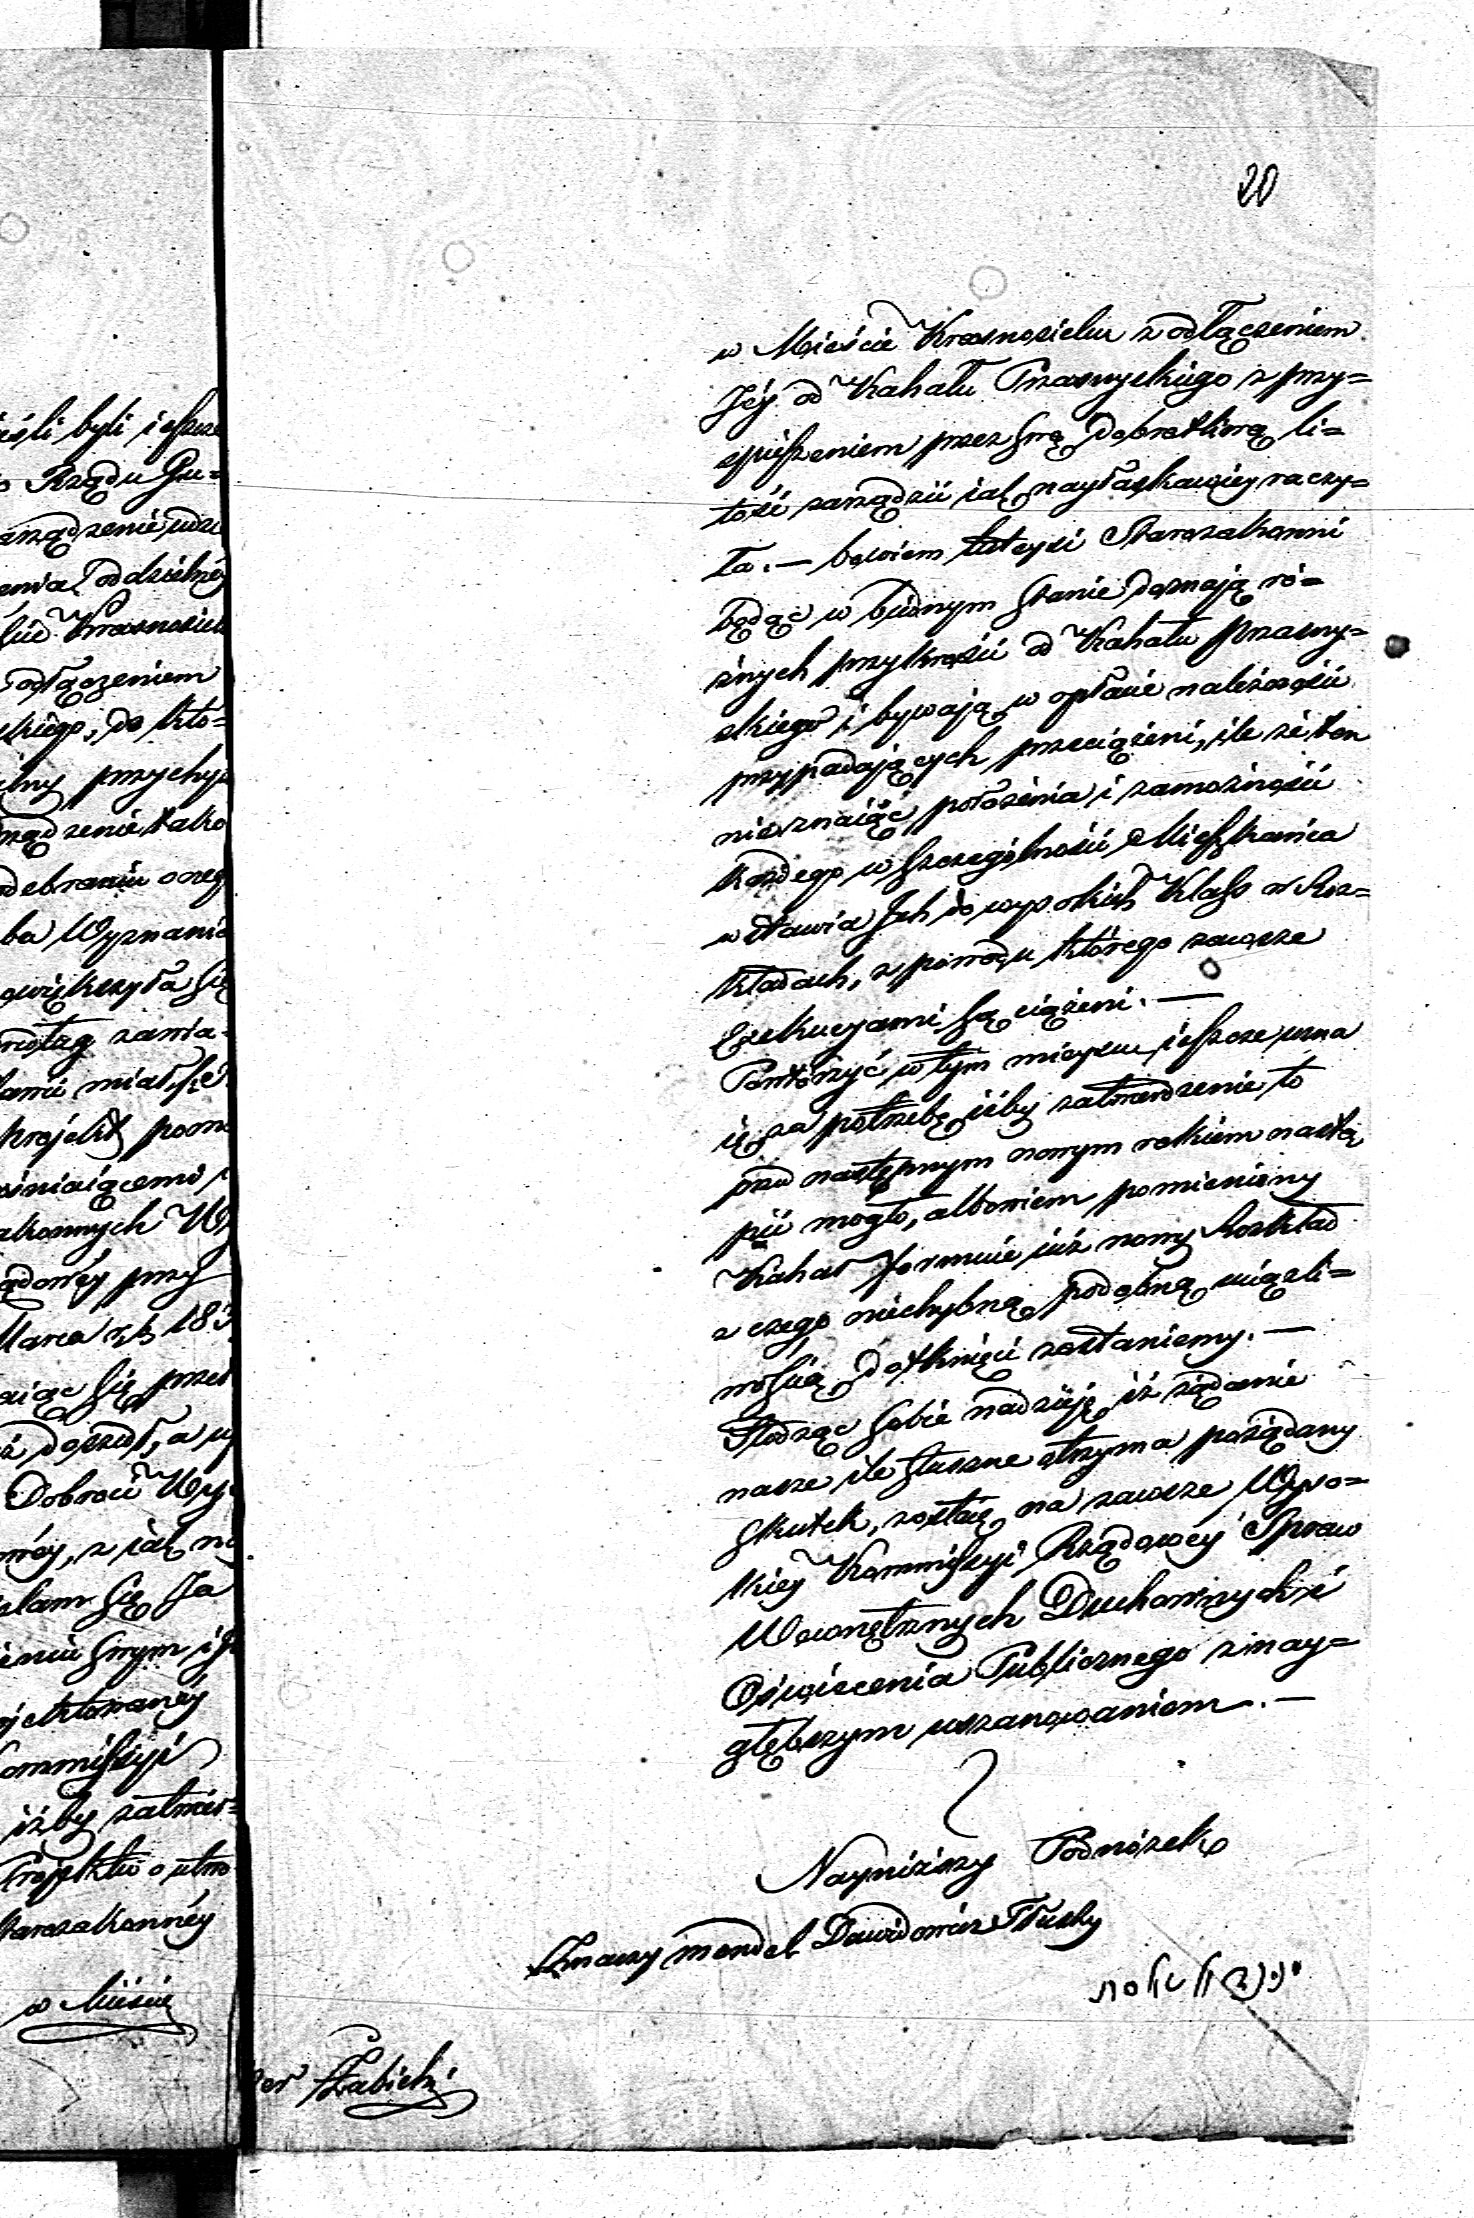 20
w Mieście Krasnosielcu z odłączeniem
Jéy od Kahału Przasnyskiego z przy=
spieszeniem przez swą dobrotliwą li=
tość zarządzić iak nayłaskawiey raczy=
ła. — bowiem tuteysi Starozakonni
będąc w biednym stanie doznają ró=
żnych przykrości od Kahału Przasny=
skiego i bywają w opłacie należności
przypadających przeciążeni, ile że ten
nieznaiąc położenia i zamożności
każdego w szczególności Mieszkańca
wstawia Ich do wysokich Klass w Roz=
kładach, z powodu którego zawsze
Exekucyami są ciążeni. —
Powtórzyć w tym mieyscu ieszcze uzna
ię za potrzebę iżby zatwierdzenie to
przed następnym nowym rokiem nastą
pić mogło, albowiem pomieniony
Kahał formuie iuż nowy Rozkład
z czego niechybną podobną uciążli=
wością dotknięci zostaniemy. —
Słodząc sobie nadzieję iż żądanie
nasze ile słuszne otrzyma pożądany
skutek, zostaię na zawsze Wyso=
kiey Kommissyi Rządowéy Spraw
Wewnętrznych Duchownych i
Oświecenia Publicznego z nay=
głębszym uszanowaniem. —
Nayniższy Podnóżek
Szmaszy mendel Dawidowicz Tłusty
ieśli byli ieszcze
Rządu Gu=
arządzenie
oddzielnéy
Krasnosiel
odłączeniem
skiego, do któ=
przychyl
rządzenie tako
odebraniu
ba Wyznania
owiększyła się
miał się
projekt
akonnych
ądowéy przy
Marca r. b. 183
aiąc się przed
doszedł, a
Dobroci Wys
owéy, z iak
stem się Ja
swym i
Kommissyi
iżby zatwier=
Projektu o utwo
tarozakonnéy
w Mieście
Żabicki